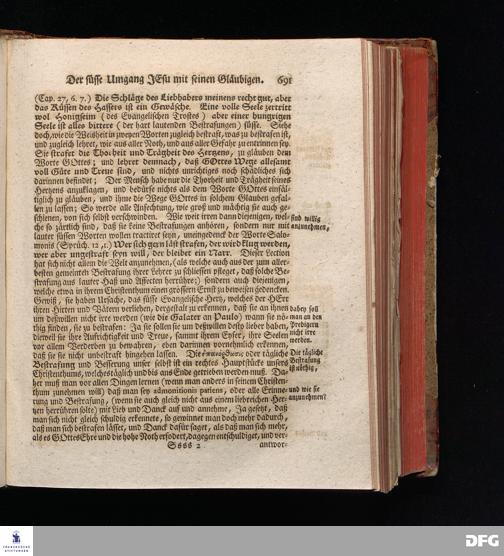 Der süsse Umgang JEsu mit seinen Gläubigen. 691
(Cap. 27, 6. 7.) Die Schläge des Liebhabers meinens recht gut, aber
das Küssen des Hassers ist ein Gewäsche. Eine volle Seele zertritt
wol Honigseim (des Evangelischen Trostes) aber einer hungrigen
Seele ist alles bittere (der hart lautenden Bestrafungen) süsse. Siehe
doch, wie die Weisheit in zweyen Worten zugleich bestraft, was zu bestrafen ist,
und zugleich lehret, wie aus aller Noth, und aus aller Gefahr zu entrinnen sey.
Sie strafet die Thorheit und Trägheit des Hertzens, zu gläuben dem
Worte GOttes; und lehret demnach, daß GOttes Wege allesamt
voll Güte und Treue sind, und nichts unrichtiges noch schädliches sich
darinnen befindet; Der Mensch habe nur die Thorheit und Trägheit seines
Hertzens anzuklagen, und bedürfe nichts als dem Worte GOttes einfäl-
tiglich zu gläuben, und ihme die Wege GOttes in solchem Glauben gefal-
len zu lassen; So werde alle Anfechtung, wie groß und mächtig sie auch ge-
schienen, von sich selbst verschwinden. Wie weit irren dann diejenigen, wel-
che so zärtlich sind, daß sie keine Bestrafungen anhören, sondern nur mit
lauter süssen Worten wollen tractiret seyn, uneingedenck der Worte Salo-
monis (Sprüch. 12, 1.) Wer sich gern läst strafen, der wird klug werden,
wer aber ungestraft seyn will, der bleibet ein Narr. Dieser Lection
hat sich nicht allein die Welt anzunehmen, (als welche auch aus der zum aller-
besten gemeinten Bestrafung ihrer Lehrer zu schliessen pfleget, daß solche Be-
strafung aus lauter Haß und Affecten herrühre;) sondern auch diejenigen,
welche etwa in ihrem Christenthum einen grössern Ernst zu beweisen gedencken.
Gewiß, sie haben Ursache, das süsse Evangelische Hertz, welches der HErr
ihren Hirten und Vätern verliehen, dergestalt zu erkennen, daß sie an ihnen
um deßwillen nicht irre werden (wie die Galater an Paulo) wann sie nö-
thig finden, sie zu bestrafen: Ja sie sollen sie um deßwillen desto lieber haben,
dieweil sie ihre Aufrichtigkeit und Treue, sammt ihrem Eyfer, ihre Seelen
vor allem Verderben zu bewahren, eben darinnen vornehmlich erkennen,
daß sie sie nicht unbestraft hingehen lassen. Die ἐπανόρθωσις oder tägliche
Bestrafung und Besserung unser selbst ist ein rechtes Hauptstücke unsers
Christenthums, welches täglich und bis ans Ende getrieben werden muß. Da-
her muß man vor allen Dingen lernen (wenn man anders in seinem Christen-
thum zunehmen will) daß man sey admonitionis patiens, oder alle Erinne-
rung und Bestrafung, (wenn sie auch gleich nicht aus einem liebreichen Her-
tzen herrühren solte) mit Lieb und Danck auf und annehme. Ja gesetzt, daß
man sich nicht gleich schuldig erkennete, so gewinnet man doch mehr dadurch,
daß man sich bestrafen lässet, und Danck dafür saget, als daß man sich mehr,
als es GOttes Ehre und die hohe Noth erfodert, dagegen entschuldiget, und ver-
Ssss 2 antwor-
sind willig
anzunehmen,
dabey soll
man an den
Predigern
nicht irre
werden.
Die tägliche
Bestrafung
ist nöthig,
und wie sie
anzunehmen?
FRANCKESCHE
STIFTUNGEN
DFG